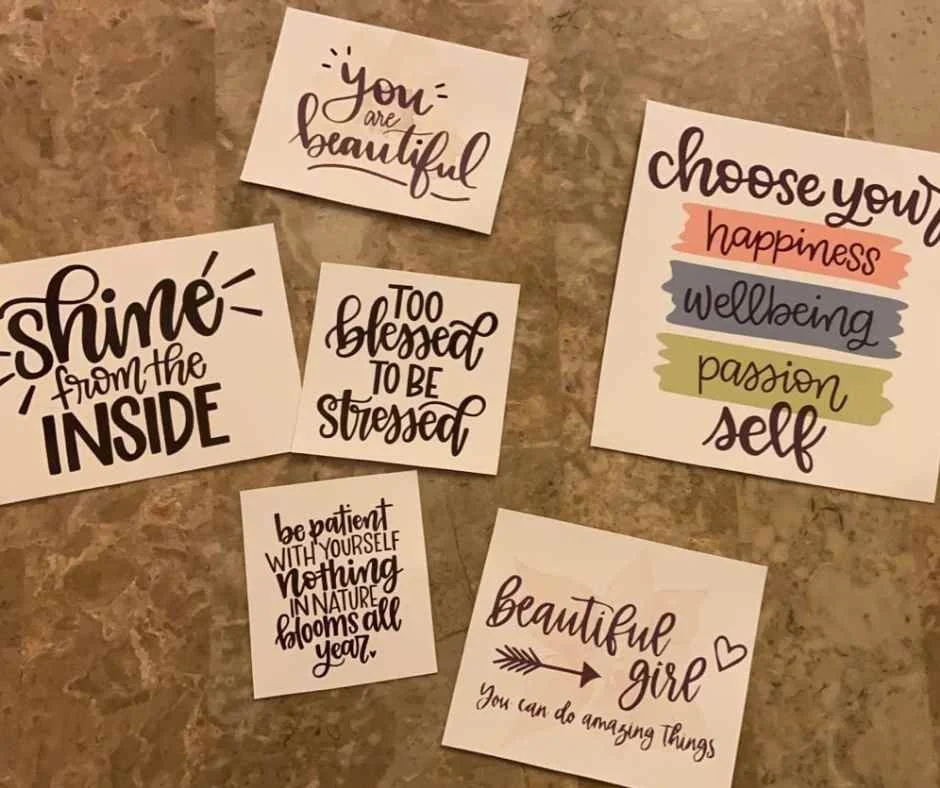 you
are
beautiful
choose your
happiness
wellbeing
passion
self
shine
from the
INSIDE
TOO
blessed
TO BE
stressed
be patient
WITH YOURSELF
nothing
IN NATURE
blooms all
year
beautiful
girl
You can do amazing Things